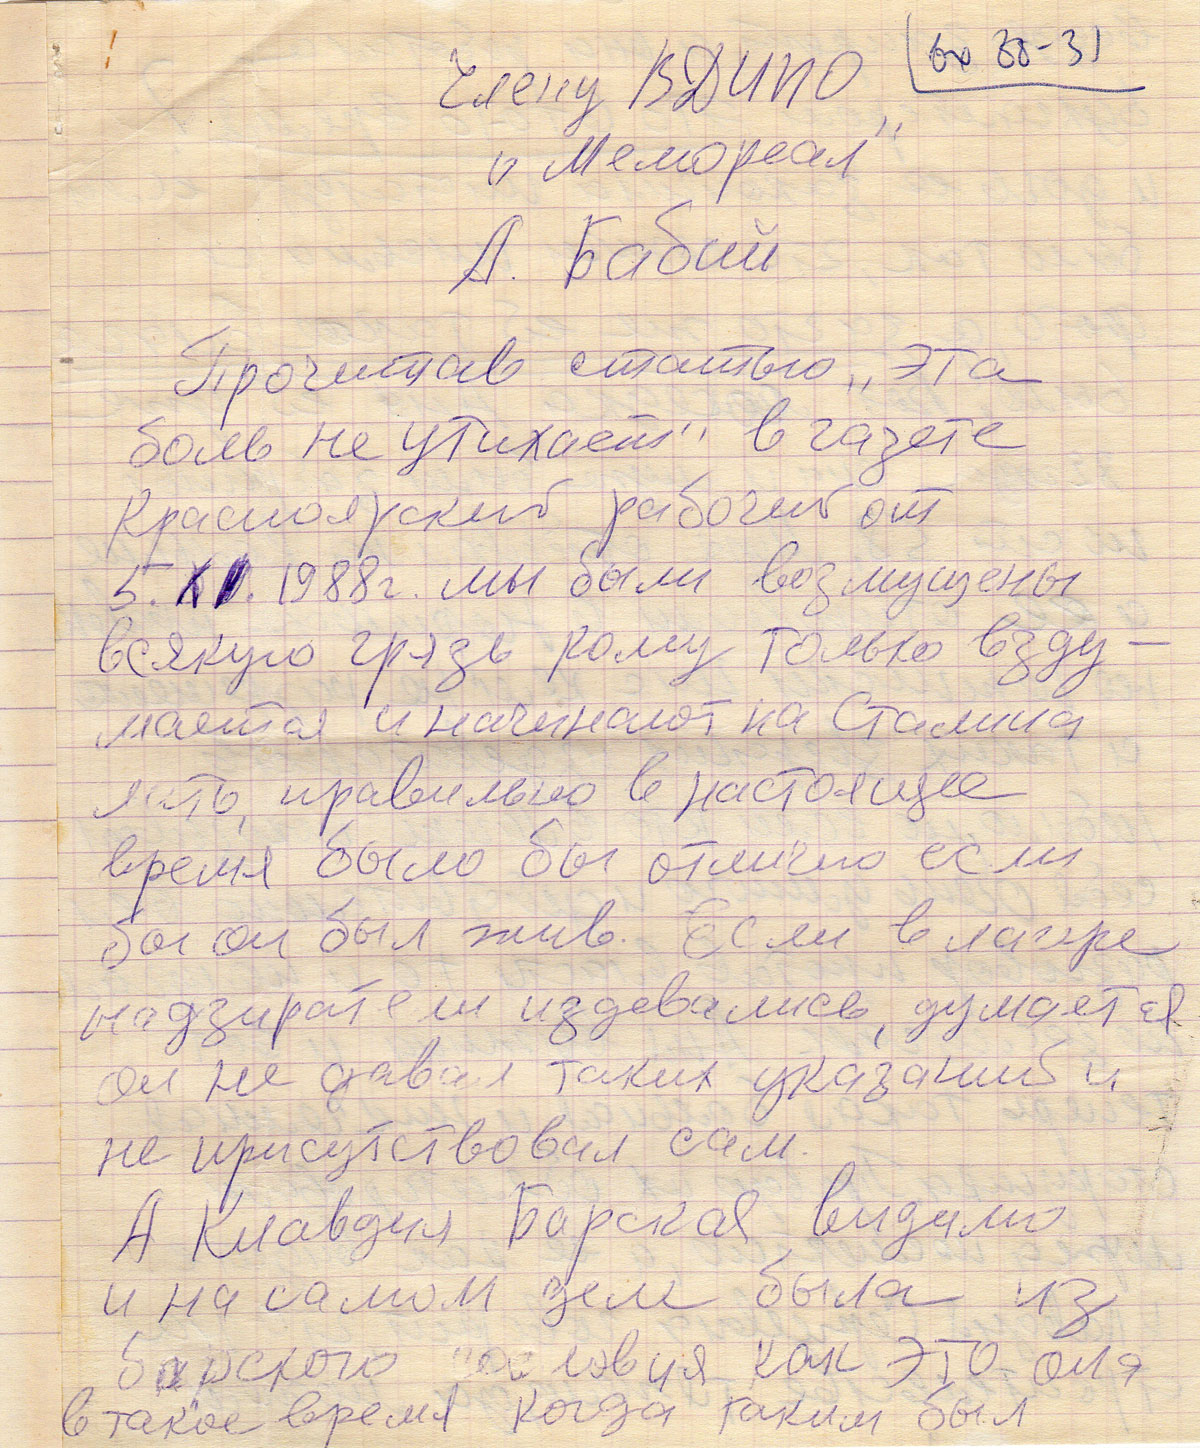 вх 30-31
Члену ВДИПО
„Мемореал"
А. Бабий
Прочитав статью „Эта
боль не утихает" в газете
Красноярский рабочий от
5.XI.1988г. мы были возмущены
всякую грязь кому только взду-
мается и начинают на Сталина
лить, правильно в настоящее
время было бы отлично если
бы он был жив. Если в лагре
надзиратели издевались, думается
он не давал таких указаний и
не присутствовал сам.
А Клавдия Барская видимо
и на самом деле была из
барского сословия как это она
в такое время когда таким был